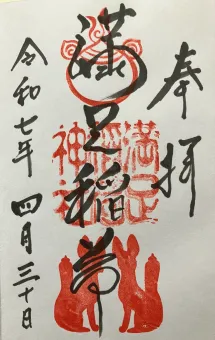 奉拝
満足稲荷
満足稲荷神社
令和七年 四月三十日